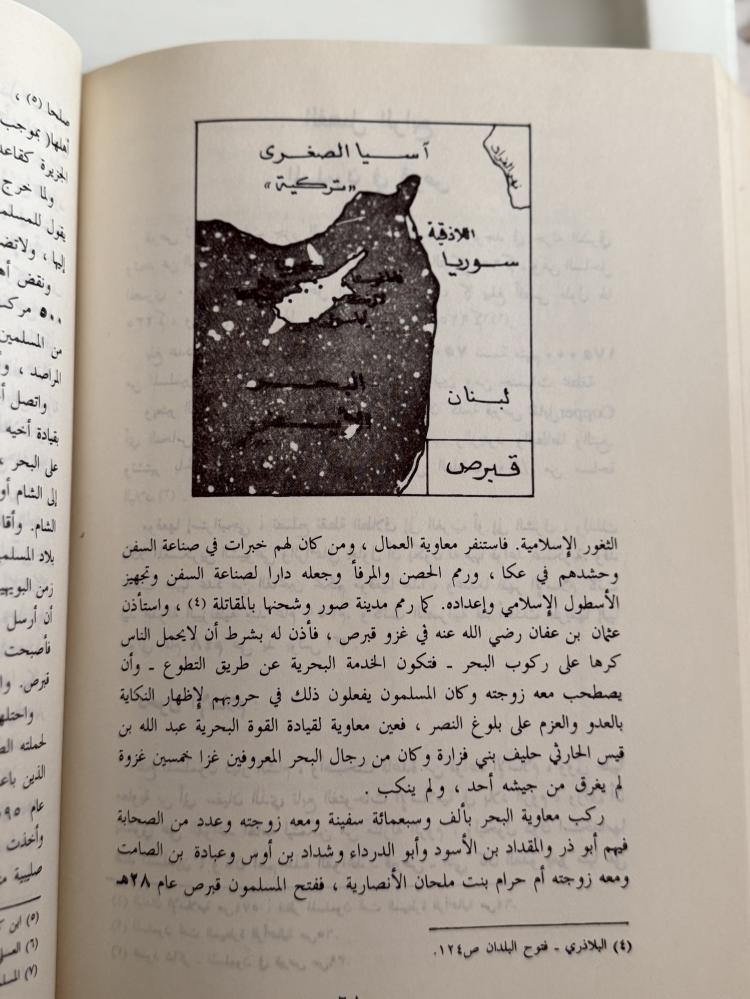 آسيا الصغرى
«تركية»
نهر الفرات
اللاذقية
سوريا
البحر
لبنان
قبرص
الثغور الإسلامية. فاستنفر معاوية العمال ، ومن كان لهم خبرات في صناعة السفن
وحشدهم في عكا ، ورمم الحصن والمرفأ وجعله دارا لصناعة السفن وتجهيز
الأسطول الإسلامي وإعداده. كما رمم مدينة صور وشحنها بالمقاتلة (٤) ، واستأذن
عثمان بن عفان رضي الله عنه في غزو قبرص ، فأذن له بشرط أن لايحمل الناس
كرها على ركوب البحر ـ فتكون الخدمة البحرية عن طريق التطوع ـ وأن
يصطحب معه زوجته وكان المسلمون يفعلون ذلك في حروبهم لإظهار النكاية
بالعدو والعزم على بلوغ النصر ، فعين معاوية لقيادة القوة البحرية عبد الله بن
قيس الحارثي حليف بني فزارة وكان من رجال البحر المعروفين غزا خمسين غزوة
لم يغرق من جيشه أحد ، ولم ينكب .
ركب معاوية البحر بألف وسبعمائة سفينة ومعه زوجته وعدد من الصحابة
فيهم أبو ذر والمقداد بن الأسود وأبو الدرداء وشداد بن أوس وعبادة بن الصامت
ومعه زوجته أم حرام بنت ملحان الأنصارية ، ففتح المسلمون قبرص عام ٢٨هـ
(٤) البلاذري - فتوح البلدان ص١٢٤.
صلحا (٥) ،
بموجب
الجزيرة كقاعد
ولما خرج
يقول للمسلم
إليها ، ولاتض
ونقض أه
٥٠٠ مركب
من المسلمين
المراصد ، و
واتصل أ
بقيادة أخيه
على البحر ،
إلى الشام أو
الشام. وأقا
بلاد المسلم
زمن البويهي
أن أرسل
فأصبحت
قبرص. وا
واحتلها
لحملته الص
الذين باع
عام
وأخذت
صليبية م
(٥) ابن
(٦) العسل
(٧) المسل